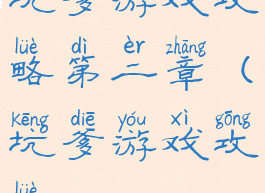 坑爹游戏攻
lüè dì èr zhāng
略第二章（
kēng diē yóu xì gōng
坑爹游戏攻
lüè